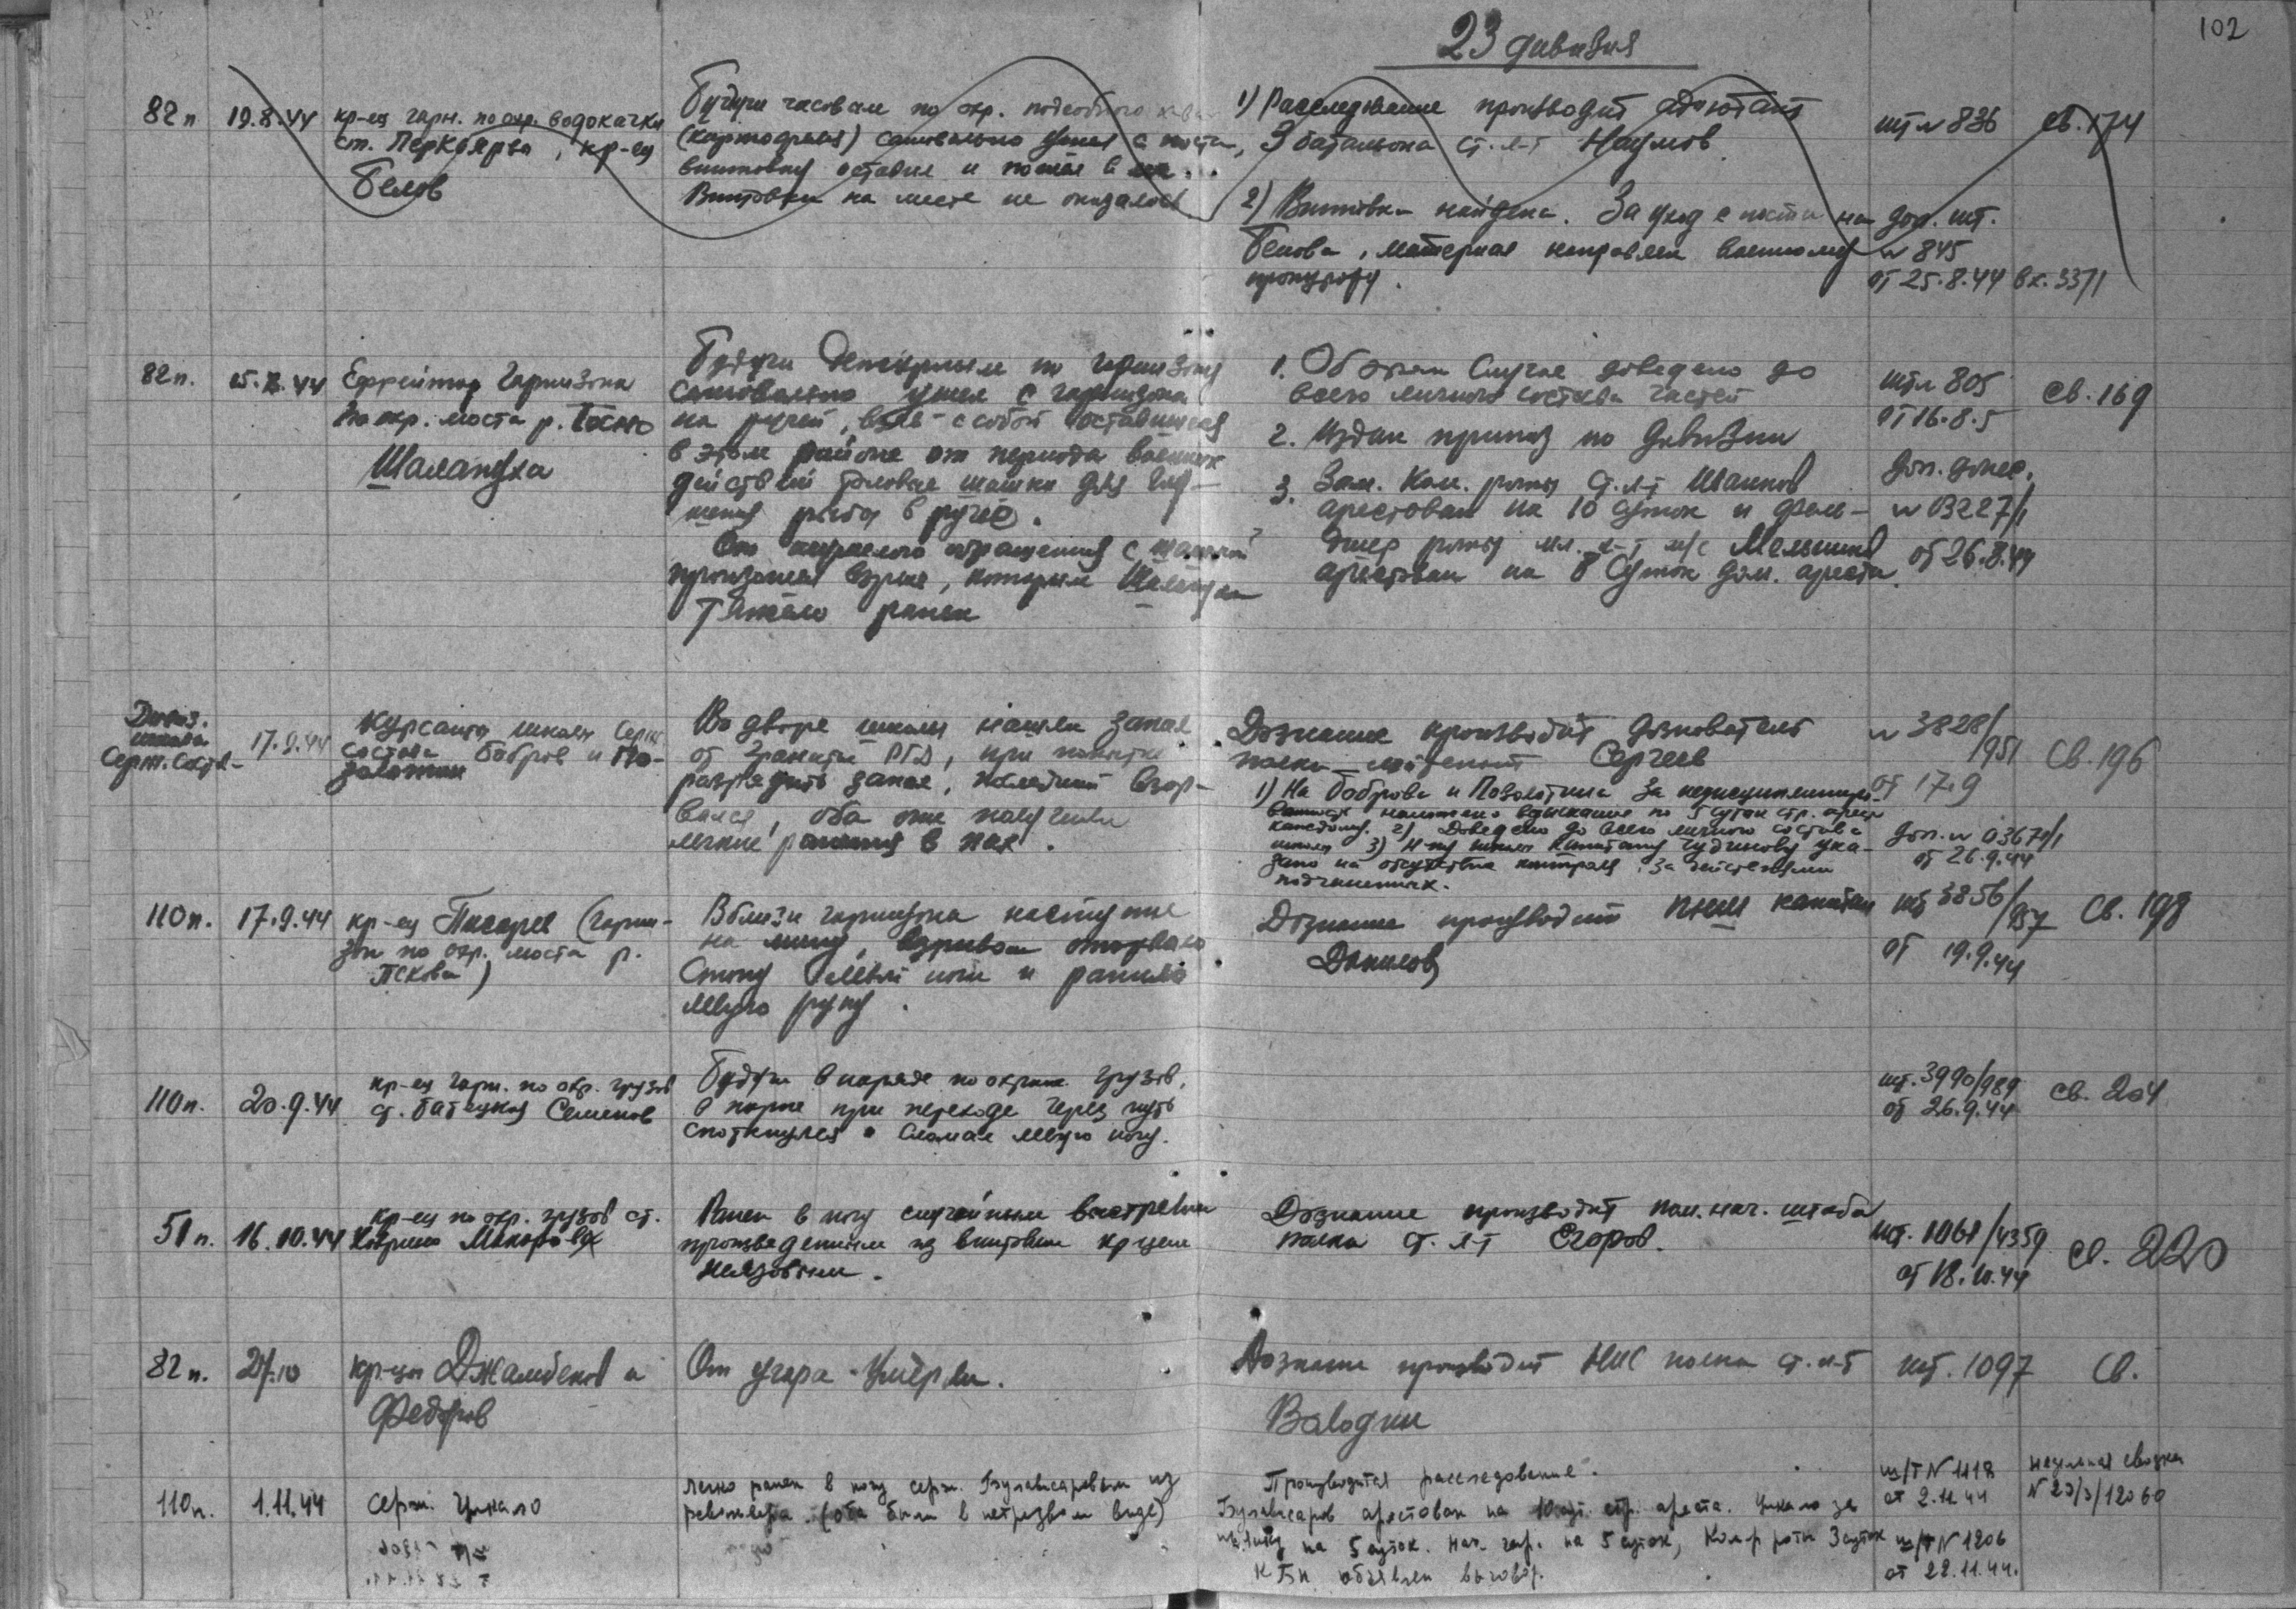 102
23 дивизия
82 п
19.8.44
кр-ец гарн. по охр. водокачки
ст. Перкъярви, кр-ец
Белов
Будучи часовым по охр. подсобного
(картофеля) самовольно ушел с поста,
винтовку оставил и пошел в
Винтовки на месте не оказалось
1) Расследование производит адъютант
3 батальона ст. л-т Наумов
2) Винтовка найдена. За уход с поста на
Белова, материал направлен военному
прокурору.
шт № 836
доп. шт.
№ 845
от 25.8.44 вх. 3371
св. 174
82 п.
15.8.44
Ефрейтор гарнизона
по охр. моста р. Тосно
Шаландха
Будучи дежурным по гарнизону
самовольно ушел с гарнизона
на ручей, взяв с собой оставшиеся
в этом районе от периода военных
действий толовые шашки для глу-
шения рыбы в ручье.
От неумелого обращения с шашкой
произошел взрыв, которым
тяжело ранен
1. Об этом случае доведено до
всего личного состава частей
2. Издан приказ по дивизии
3. Зам. ком. роты ст. л-т Шашков
арестован на 10 суток и фель-
дшер роты мл. л-т м/с Мельников
арестован на 8 суток дом. ареста.
шт № 805
от 16.8.5
доп. донес.
№ 03227/1
от 26.8.44
св. 169
Дивиз.
школа
Серж. Сост.
17.9.44
Курсанты школы серж
состава Бобров и По-
золотин
Во дворе школы нашли запал
от гранаты РГД, при попытке
разрядить запал, последний взор-
вался, оба они получили
легкие ранения в пах.
Дознание производит дознователь
полка лейтенант Сергеев
1) На Боброва и Позолотина за недисциплиниро-
ванность наложено взыскание по 5 суток стр. ареста
каждому. 2) Доведено до всего личного состава
школы 3) Н-ку школы капитану Чудинову ука-
зано на отсутствие контроля за действиями
подчиненных.
№ 3828/
951
от 17.9
доп. № 03671/1
от 26.9.44
св. 196
110 п.
17.9.44
кр-ец Писарев (гарни-
зон по охр. моста р.
Пскова)
Вблизи гарнизона наступил
на мину, взрывом оторвало
стопу левой ноги и ранило
левую руку.
Дознание производит ПНШ капитан
Данилов
шт 3856/
957
от 19.9.44
св. 198
110 п.
20.9.44
кр-ец гарн. по охр. грузов
ст. Батецкая Семенов
Будучи в наряде по охране грузов,
в парке при переходе через путь
споткнулся и сломал левую ногу.
шт. 3990/989
от 26.9.44
св. 204
51 п.
16.10.44
кр-ец по охр. грузов ст.
Макаров
Ранен в ногу случайным выстрелом
произведенным из винтовки кр-цем
Дознание производит пом. нач. штаба
полка ст. л-т Егоров.
шт. 1061/4359
от 18.10.44
св. 220
82 п.
кр-цы Джамбеков и
Федоров
От угара умерли.
Дознание производит НШ полка ст. л-т
шт. 1097
св.
110 п.
1.11.44
серж. Цикало
легко ранен в ногу серж. Булависаровым из
револьвера (оба были в нетрезвом виде)
Производится расследование.
Булависаров арестован на 10 сут. стр. ареста. Цикало за
на 5 суток. Нач. гар. на 5 суток, Ком-р роты 3 суток
КБн объявлен выговор.
ш/т № 1118
от 2.11.44
ш/т № 1206
от 22.11.44.
недельная сводка
№ 23/3/12060